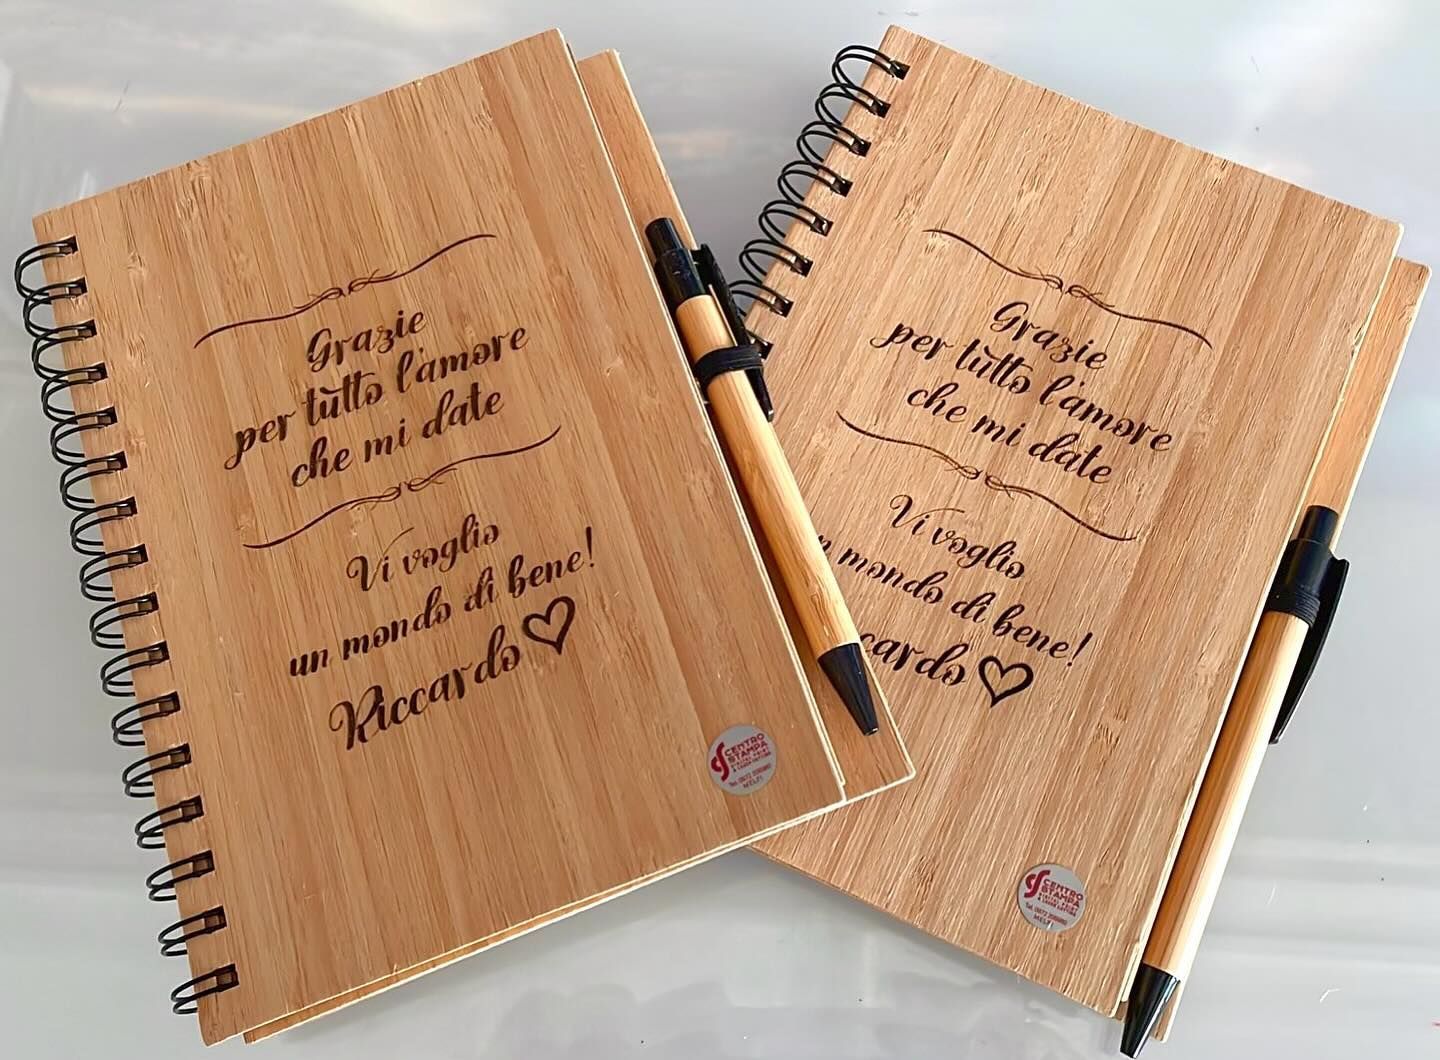 Grazie
per tutto l'amore
che mi date
Vi voglio
un mondo di bene!
Riccardo
CENTRO
STAMPA
DIGITAL PRINT
& LASER CUTTING
MELFI
Grazie
per tutto l'amore
che mi date
Vi voglio
mondo di bene!
CENTRO
STAMPA
DIGITAL PRINT
& LASER CUTTING
MELFI